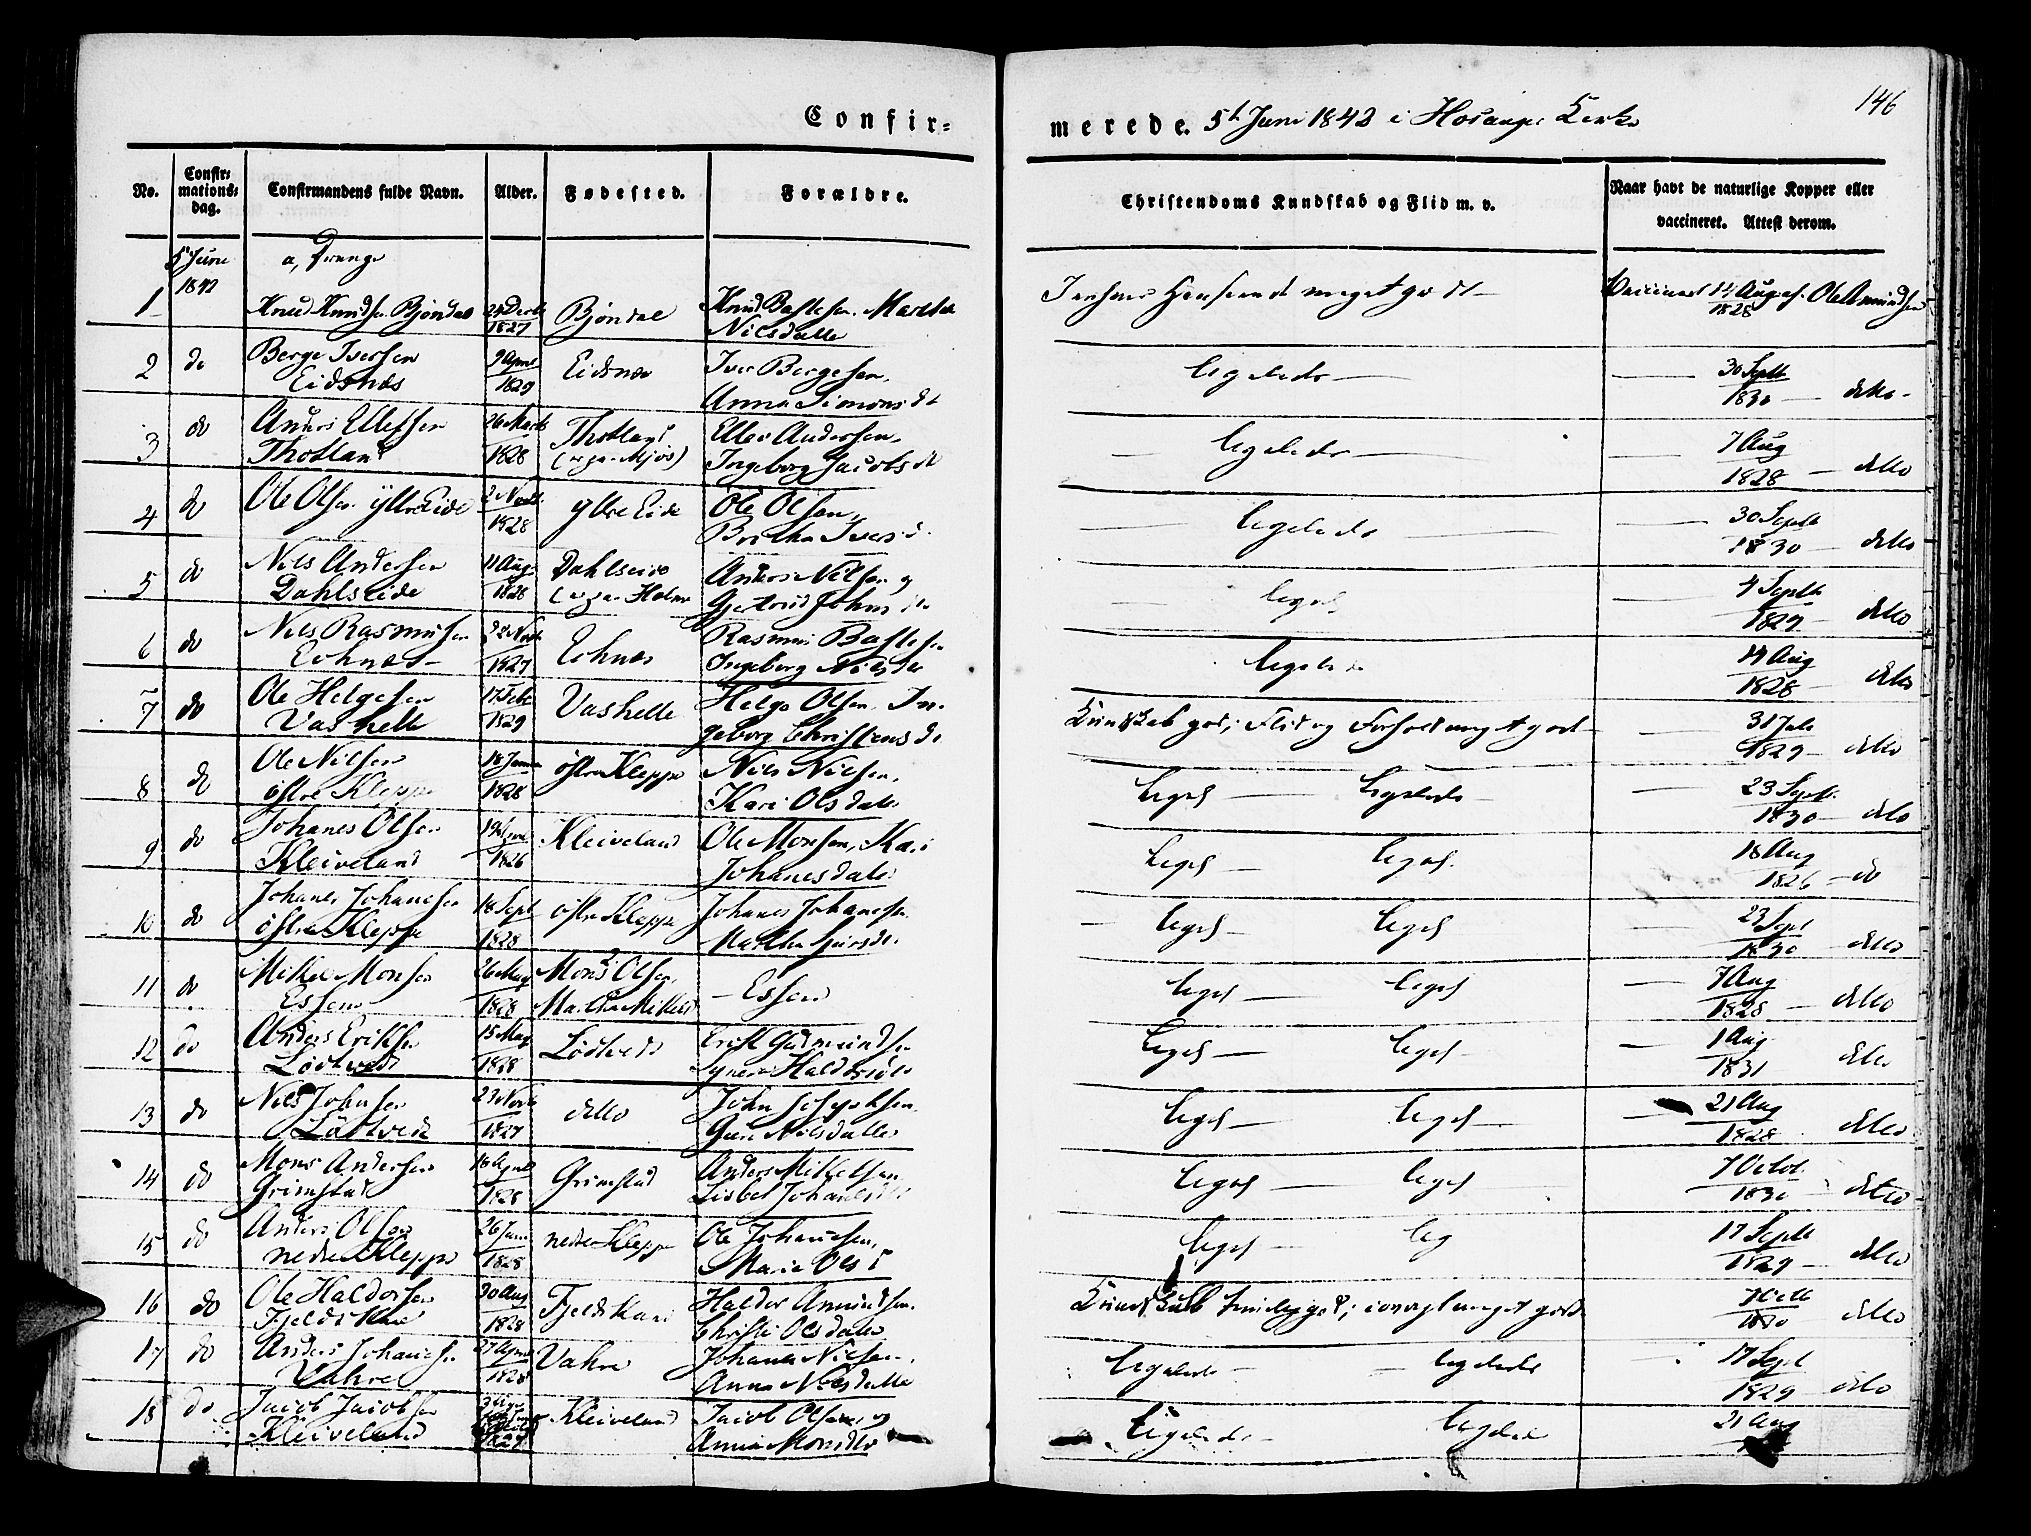 146
Confir-
merede. 5t Juni 1842 i Hosanger Kirke
No.
Confir-
mations-
dag.
Confirmandens fulde Navn.
Alder.
Fødested.
Forældre.
Christendoms Kundskab og Flid m. v.
Naar havt de naturlige Kopper eller
vaccineret. Attest derom.
5 Juni
1842
a, Drenge
1
Knud Knudsen Bjöndal
1827
Bjöndal
Knud
Nilsdatter
meget godt
Vaccineret 14 Aug
1828
Ole Amundsen
2 do
Berge Iversen
Eidsnæs
9 April
1829
Eidsnæs
Iver Bergesen,
Anna Simonsd
ligeledes
30 Septb
1830
ditto
3 do
Anders Ellefsen
Thotland
26 Marts
1828
Thotland
Ellev Andersen,
Ingeborg Jacobsd
ligeledes
7 Aug
1828
ditto
4 do
Ole Olsen ytre Eide
2 Novb
1828
ytre Eide
Ole Olsen,
Britha Iversd
ligeledes
30 Septb
1830
ditto
5 do
Nils Andersen
Dahlseide
11 Aug
1828
Dahlseide
Anders Nilsen og
Gjertrud Johnsd
liges
4 Septb
1829
ditto
6 do
Nils Rasmusen
Echnæs
22 Novb
1827
Echnæs
Rasmus
Ingeborg Nilsdr
ligeledes
14 Aug
1828
ditto
7 do
Ole Helgesen
Vashelle
17 Febr
1829
Vashelle
Helge Olsen, In-
geborg Christensd
Kundskab god; Flid og Forhold meget god
31 Juli
1829
ditto
8 do
Ole Nilsen
östre Kleppe
18 Januar
1828
östre Kleppe
Nils Nilsen,
Kari Olsdatter
liges ligeledes
23 Septb
1830
ditto
9 do
Johanes Olsen
Kleiveland
1826
Kleiveland
Ole Monsen, Kari
Johanesdatter
liges liges
18 Aug
1826 do
10 do
Johanes Johanesen
östre Kleppe
18 Sept
1828
östre Kleppe
Johanes Johanesen
Martha
liges liges
23 Sept
1830
ditto
11 do
Mikel Monsen
Essem
26 May
1828
Mons Olsen,
Martha Mikelsd
Essem
liges liges
7 Aug
1828
ditto
12 do
Anders Eriksen
Lödtvedt
15 May
1828
Lödtvedt
Erik Gudmundsen
Haldorsdr
liges liges
1 Aug
1831
ditto
13 do
Nils Johnsen
Lödtvedt
23 Novb
1827
ditto
John Josephsen
Guri Nilsdatter
liges liges
21 Aug
1828
ditto
14 do
Mons Andersen
Grimstad
18 April
1828
Grimstad
Anders Mikelsen
Lisbet Johanesdr
liges liges
7 Octob.
1830
ditto
15 do
Anders Olsen
nedre Kleppe
26 Juni
1828
nedre Kleppe
Ole Johanesen,
Maria Olsd
liges lig
17 Septb
1829
ditto
16 do
Ole Haldorsen
Fjeldskaar
30 Aug
1828
Fjeldskaar
Haldor Amundsen,
Christi Olsdatter
Kundskab temelig god; iövrigt meget god
1830
ditto
17 do
Anders Johanesen
Vahre
27 April
1828
Vahre
Johanes Nilsen,
Anna Nilsdatter
ligeledes ligeledes
17 Sept
1829
ditto
18 do
Jacob Jacobsen
Kleiveland
1827
Kleiveland
Jacob Olsen og
Anna Monsdtr
ligeledes ligeledes
21 Aug